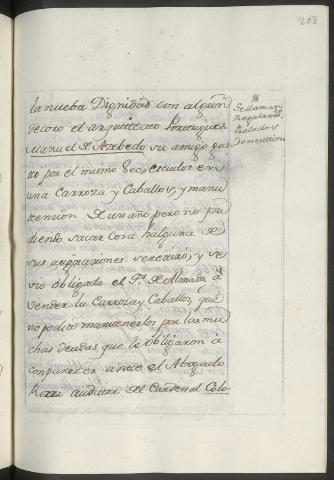 208
la nueba Dignidad con algún
decoro el arquitecto Portugués
Manuel de Azebedo su amigo gas
tó por el mismo 800 escudos en
una Carroza y Caballos, y manu
tención de un año pero no pu
diendo sacar cosa halguna de
sus asignaciones se retiró, y se
vio obligado el Pe. de Almada á
vender la Carroza y Caballos, que
no podia mantenerlos por las mu
chas deudas que le obligaron á
comparecer ante el Abogado
Rizzi auditor del Cardenal Colo-
Se llaman
Regalario
Prelados